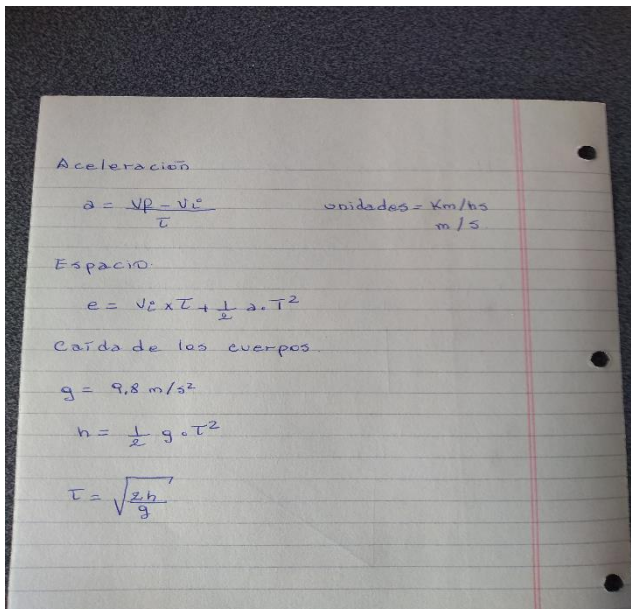 Aceleración
a = Vf - Vi / T    unidades = Km/hs
m/s
Espacio.
e = Vi x T + 1/2 a . T²
Caída de los cuerpos.
g = 9,8 m/s²
h = 1/2 g . T²
T = √2h/g